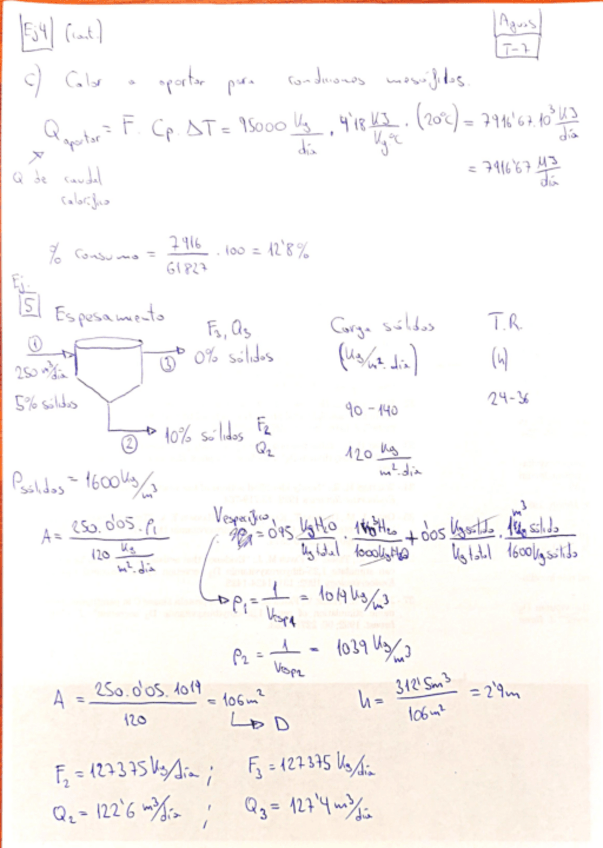 Ej4 (cont.)
Aguas
T-7
c) Calor a aportar para condiciones mesófilas.
Q aportar = F · Cp · ΔT = 95000 Kg/día · 4'18 KJ/Kg°C · (20°C) = 7916'67·10³ KJ/día
= 7916'67 MJ/día
Q de caudal
calorífico
% consumo = 7916/61827 · 100 = 12'8%
Ej.
5 Espesamiento
F3, Q3
Carga sólidos
T.R.
① 250 m³/día
③ 0% sólidos
(Kg/m²·día)
(h)
5% sólidos
90-140
24-36
② 10% sólidos
F2
Q2
120 Kg/m²·día
ρsólidos = 1600 Kg/m³
A = 250·0'05·ρ1 / 120 Kg/m²·día
Vespecífico = 0'95 KgH2O/Kgtotal · 1m³H2O/1000KgH2O + 0'05 Kgsólido/Kgtotal · 1m³ sólido/1600Kgsólido
ρ1 = 1/Vesp1 = 1019 Kg/m³
ρ2 = 1/Vesp2 = 1039 Kg/m³
A = 250·0'05·1019 / 120 = 106m²
h = 312'5m³/106m² = 2'9m
D
F2 = 127375 Kg/día ; F3 = 127375 Kg/día
Q2 = 122'6 m³/día ; Q3 = 127'4 m³/día